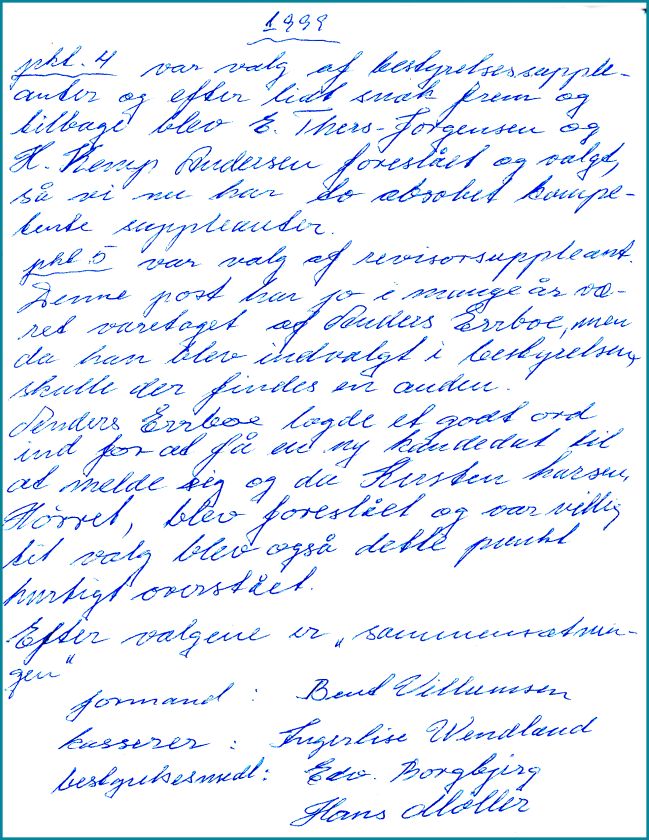 1999
pkt. 4 var valg af bestyrelsessupple-
anter og efter lidt snak frem og
tilbage blev E. Thers-Jørgensen og
H. Kemp Andersen foreslået og valgt,
så vi nu har to absolut kompe-
tente suppleanter.
pkt 5 var valg af revisorsuppleant.
Denne post har jo i mange år væ-
ret varetaget af Anders Errboe, men
da han blev indvalgt i bestyrelsen,
skulle der findes en anden.
Anders Errboe lagde et godt ord
ind for at få en ny kandedat til
at melde sig og da Kirsten Larsen,
Hørret, blev foreslået og var villig
til valg blev også dette punkt
hurtigt overstået.
Efter valgene er „sammensætnin-
gen“
formand : Bent Villumsen
kasserer : Ingerlise Wendland
bestyrelsesmedl: Edv. Borgbjerg
Hans Møller